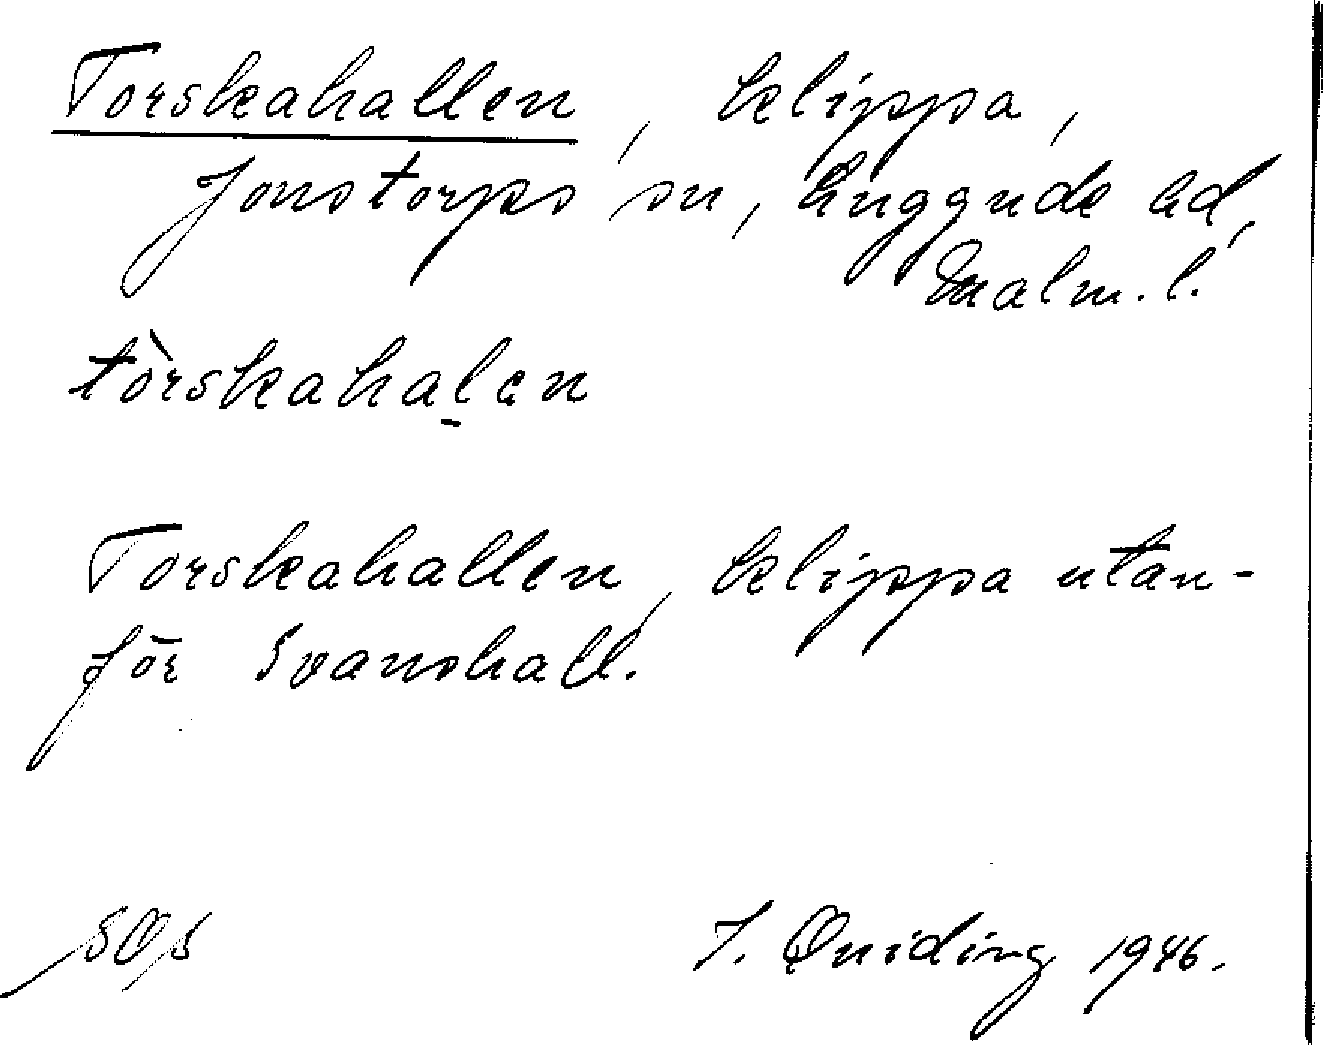 Torskahallen, klippa,
Jonstorps sn, Luggude hd,
Malm. l.
tòrskahal̠ən
Torskahallen, klippa utan-
för Svanshall.
SOS
J. Quiding 1946.